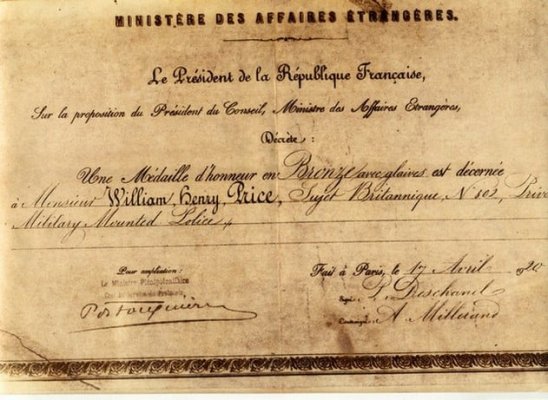 MINISTÈRE DES AFFAIRES ÉTRANGÈRES.
Le Président de la République Française,
Sur la proposition du Président du Conseil, Ministre des Affaires Etrangères,
Décrète:
Une Médaille d'honneur en Bronze avec glaives est décernée
à Monsieur William, Henry, Price, Sujet Britannique, N° 802, Priv
Military Mounted Police,
Pour ampliation: Fait à Paris, le 17 Avril 1920
Le Ministre Plénipotentiaire
Signé: P. Deschanel
Contresigné: A. Millerand